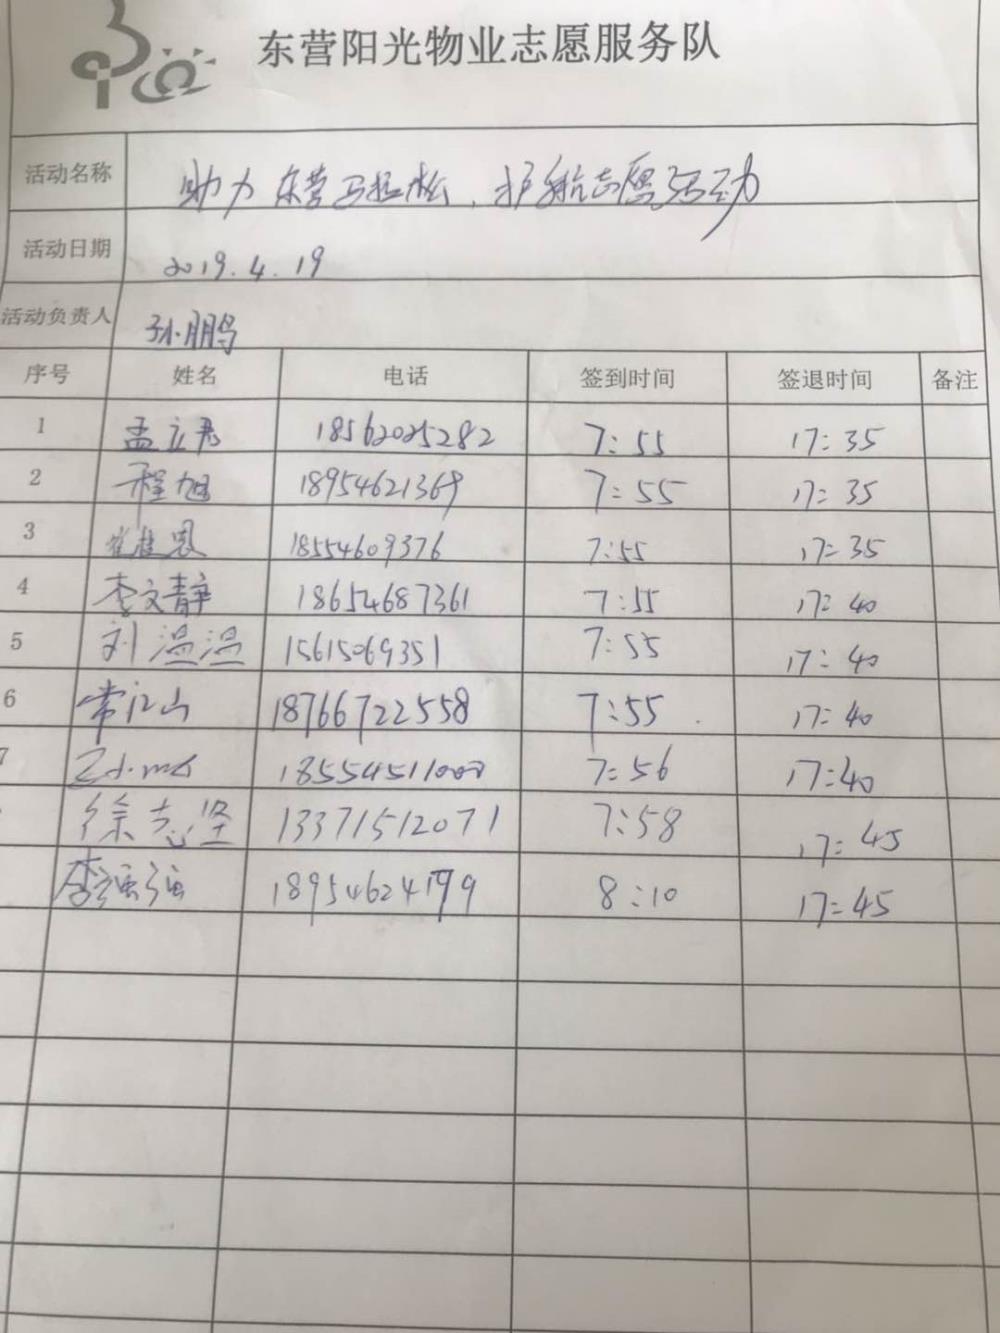 东营阳光物业志愿服务队
活动名称 助力东营马拉松、护航志愿活动
活动日期 2019.4.19
活动负责人 孙鹏
序号 姓名 电话 签到时间 签退时间 备注
1 孟立君 18562025282 7:55 17:35
2 程旭 18954621369 7:55 17:35
3 崔桂恩 18554609376 7:55 17:35
4 李文静 18654687361 7:55 17:40
5 刘温温 15615069351 7:55 17:40
6 常江山 18766722558 7:55 17:40
7 18554511000 7:56 17:40
徐志坚 13371512071 7:58 17:45
李强强 18954624199 8:10 17:45